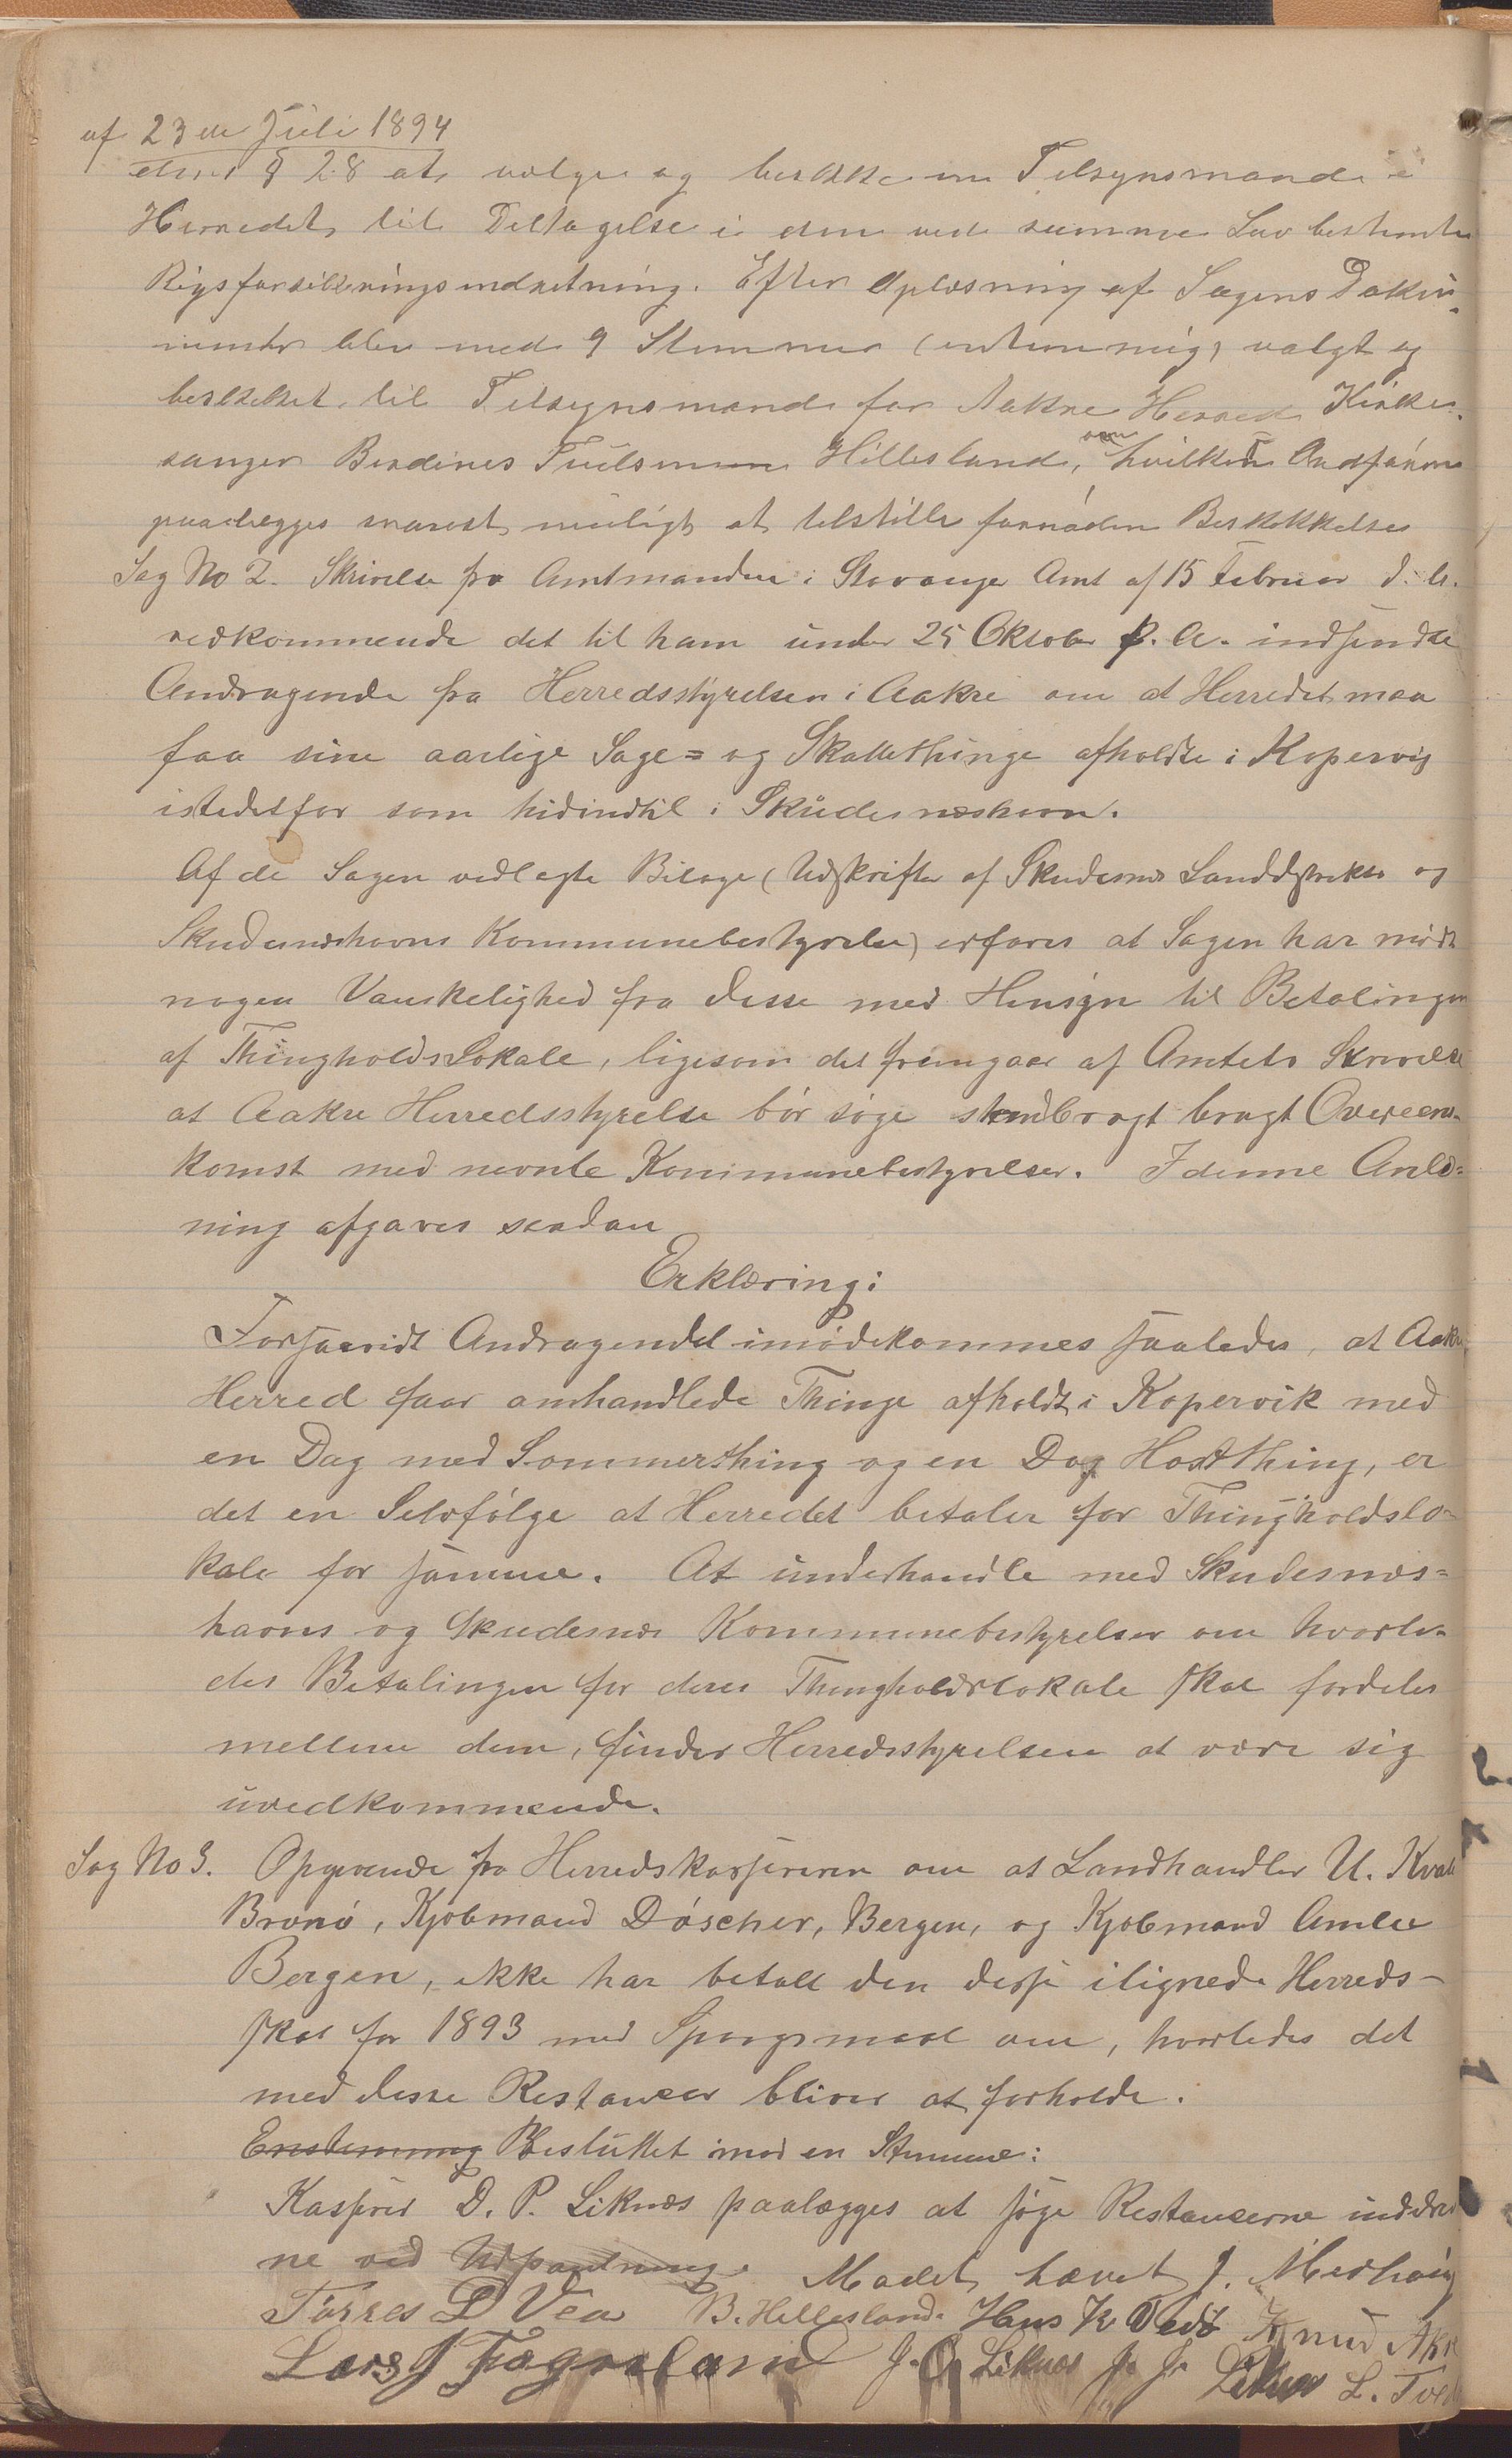 af 23de Juli 1894
dens § 28 at vælge og beskikke en Tilsynsmand i
Herredet til Deltagelse i den ved samme Lov bestemte
Rigsforsikringsindretning. Efter Oplæsning af Sagens Doku-
menter blev med 9 Stemmer (enstemmig) valgt og
beskikket til Tilsynsmand for Aakre Herred Kirke-
sanger Berdines Hillesland, som Ordføreren
paalægges snarest muligt at tilstille fornøden Beskikkelse
Sag No 2. Skrivelse fra Amtmanden i Stavanger Amt af 15 Februar d. A.
vedkommende det til ham under 25 Oktober f. A. indsendte
Andragende fra Herredsstyrelsen i Aakre om at Herredet maa
faa sine aarlige Sage= og Skattethinge afholdte i Kopervig
istedetfor som hidindtil i Skudesnæshavn.
Af de Sagen vedlagte Bilage (Udskrifter af Skudesnæs Landdistrikts og
Skudesnæshavns Kommunebestyrelse) erfares at Sagen har mødt
nogen Vanskelighed fra disse med Hensyn til Betalingen
af Thingholdslokale, ligesom det fremgaar af Amtets Skrivelse
at Aakre Herredsstyrelse bør søge bragt Overeens-
komst med nevnte Kommunebestyrelser. I denne Anled=
ning afgaves saadan
Erklæring:
Forsaavidt Andragendet imødekommes saaledes, at Aakre
Herred faar omhandlede Thinge afholdt i Kopervik med
en Dag med Sommerthing og en Dag Høstthing, er
det en Selvfølge at Herredet betaler for Thingholdslo-
kale for samme. At underhandle med Skudesnæs=
havns og Skudesnæs Kommunebestyrelser om hvorle-
des Betalingen for deres Thingholdslokale skal fordeles
mellem dem, finder Herredsstyrelsen at være sig
uvedkommende.
Sag No 3. Opgivende fra Herredskassereren om at Landhandler U. Kvale
Bronø, Kjøbmand Döscher, Bergen, og Kjøbmand Amlie
Bergen, ikke har betalt den disse ilignede Herreds-
skat for 1893 med Spørgsmaal om, hvorledes det
med disse Restancer bliver at forholde.
Enstemmig Besluttet mod en Stemme:
Kasserer D. P. Liknæs paalægges at søge Restancerne inddrev
ne ved Udpantning. Mødet hævet J. Medhaug
Tørres D Vea B. Hillesland. Hans K Vedø Knud Akre
Lars J Fagerland J. O. Liknæs J. J. Liknæs L. Tved